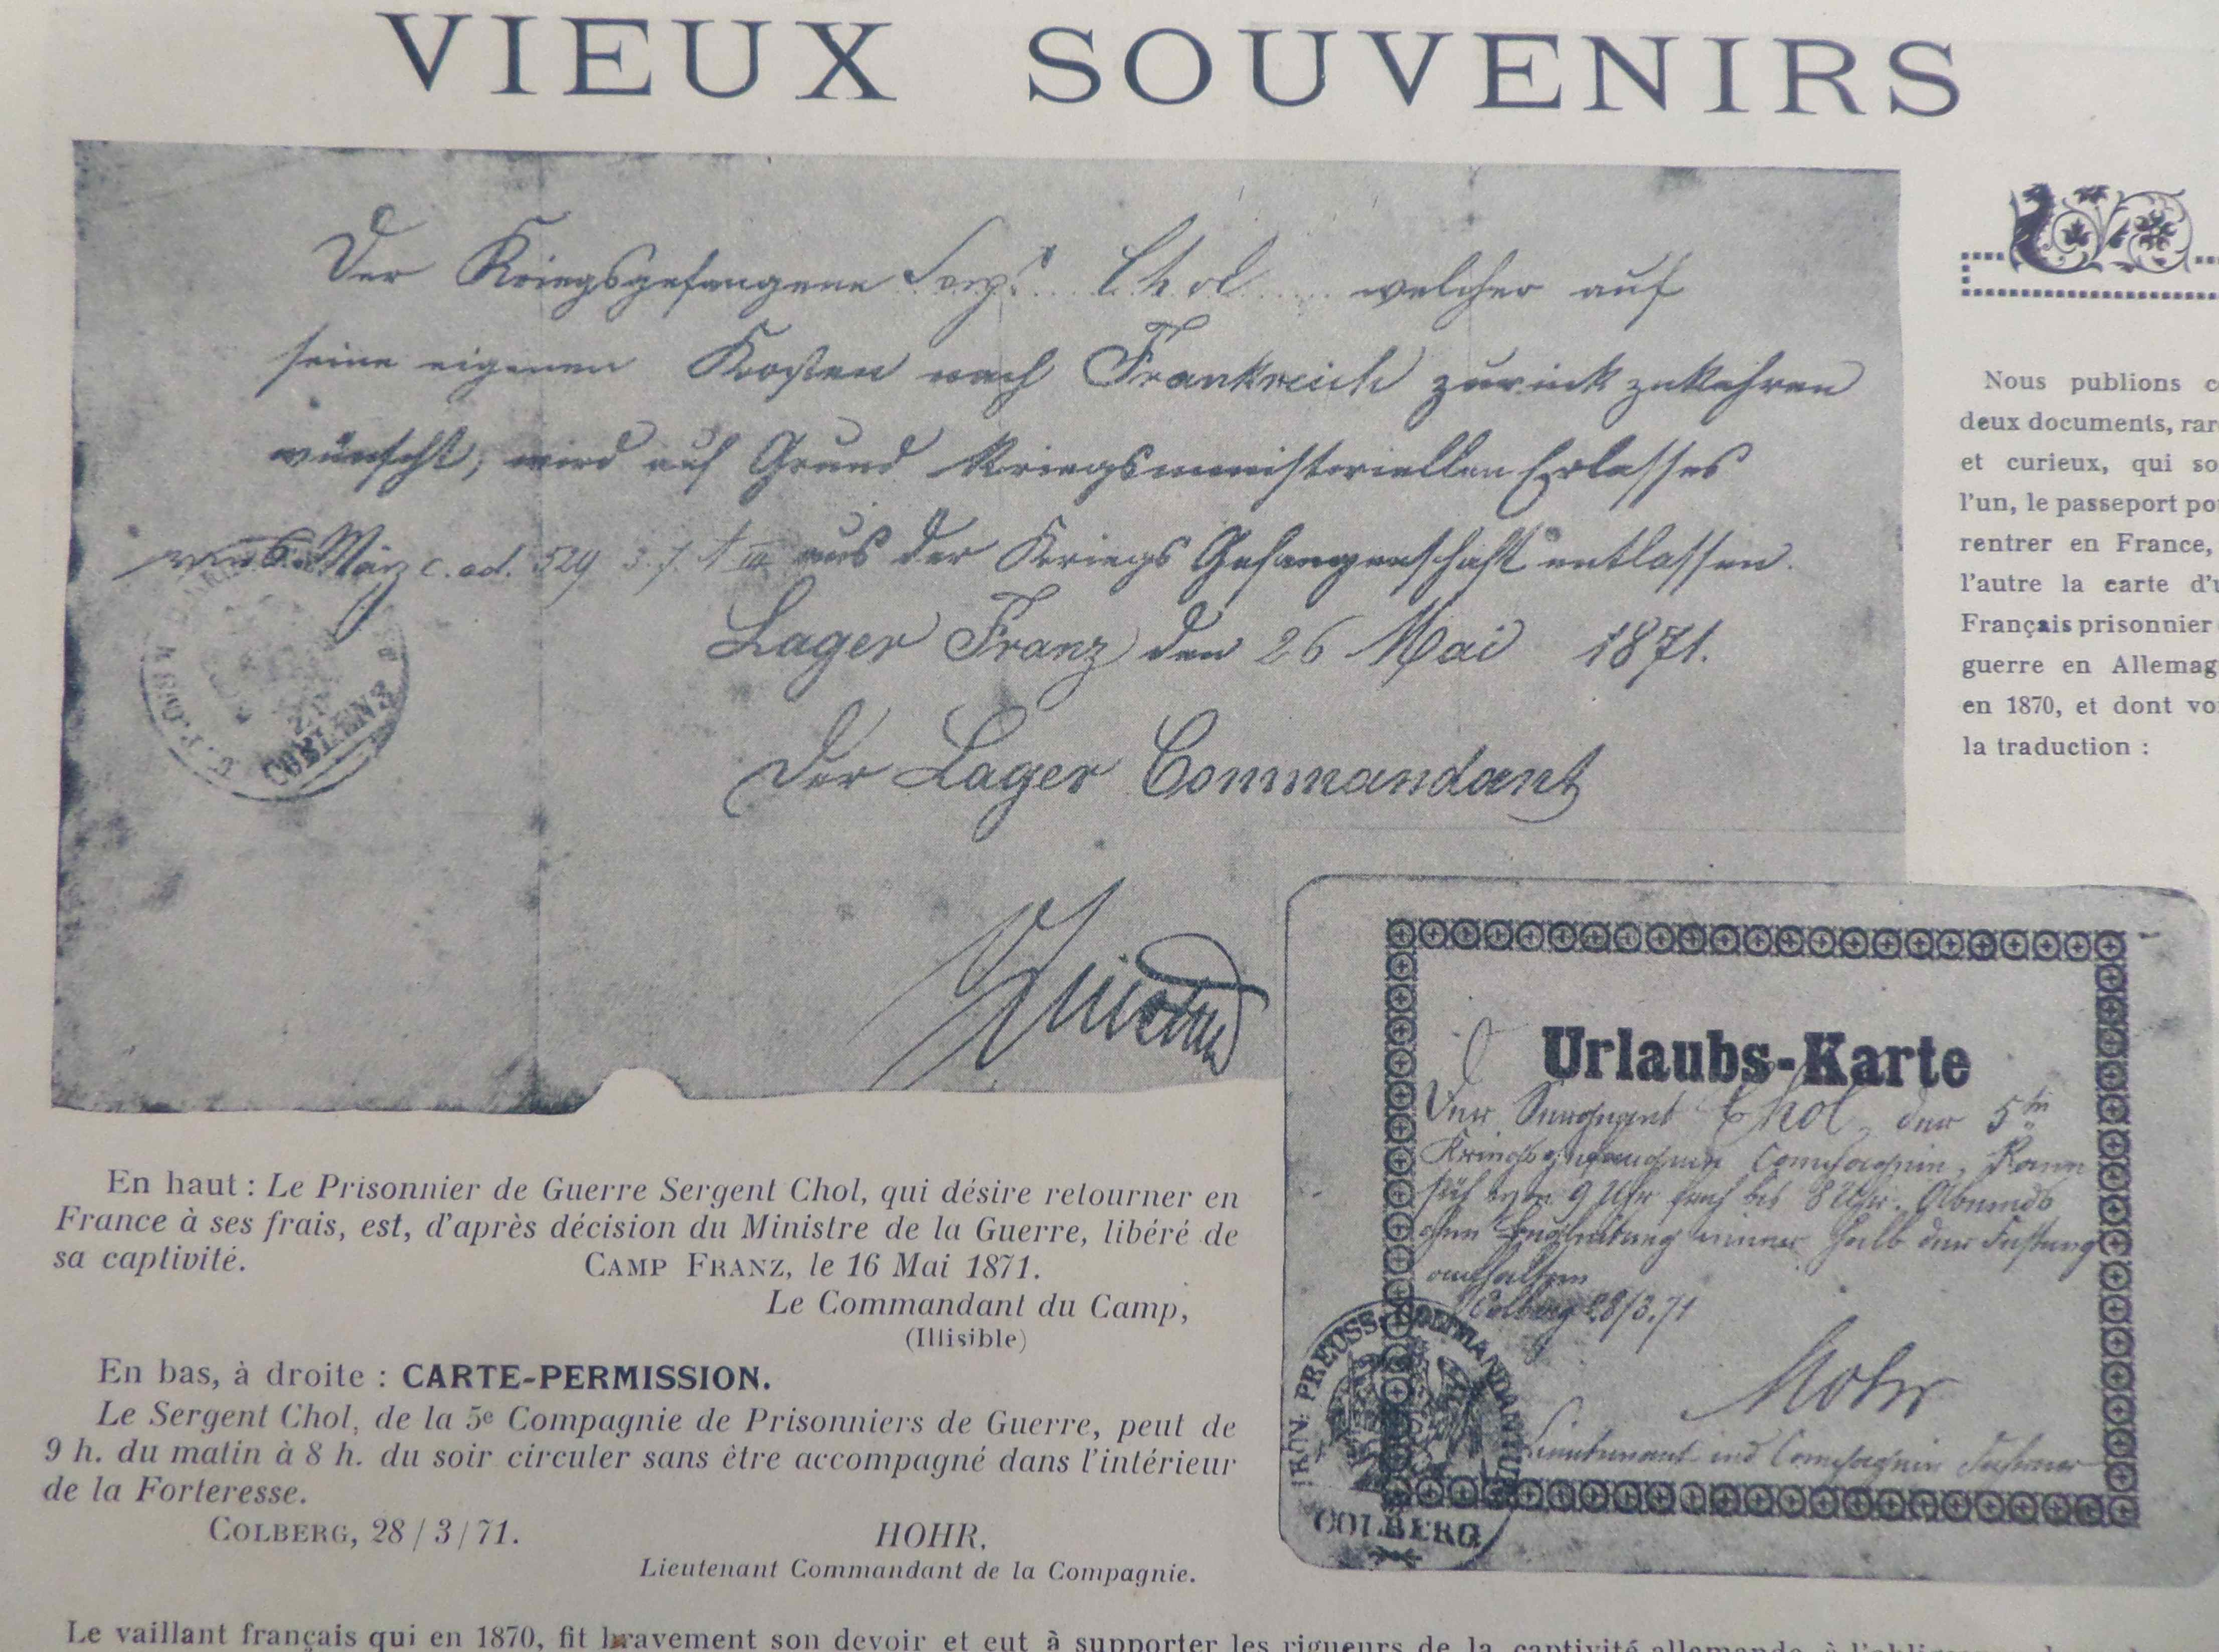 VIEUX SOUVENIRS
Der Kriegsgefangene Sergt Chol welcher auf
seine eigenen Kosten nach Frankreich zurück zukehren
wünscht, wird auf Grund kriegsministeriellen Erlasses
März c. ad. 529 aus der Kriegs Gefangenschaft entlassen.
Lager Franz den 26 Mai 1871.
Der Lager Commandant
COBLENZ
Nous publions c
deux documents, rar
et curieux, qui so
l'un, le passeport po
rentrer en France,
l'autre la carte d'u
Français prisonnier
guerre en Allemag
en 1870, et dont vo
la traduction :
Urlaubs-Karte
Der Sergeant Chol, der 5ten
Kriegsgefangenen Compagnie, kann
sich von 9 Uhr früh bis 8 Uhr Abends
ohne Begleitung inner halb der Festung
aufhalten
Colberg 28/3.71
Mohr
Lieutenant und Compagnie Führer
KÖN: PREUSS: COMMANDANTUR
COLBERG
En haut : Le Prisonnier de Guerre Sergent Chol, qui désire retourner en
France à ses frais, est, d'après décision du Ministre de la Guerre, libéré de
sa captivité. CAMP FRANZ, le 16 Mai 1871.
Le Commandant du Camp,
(Illisible)
En bas, à droite : CARTE-PERMISSION.
Le Sergent Chol, de la 5e Compagnie de Prisonniers de Guerre, peut de
9 h. du matin à 8 h. du soir circuler sans être accompagné dans l'intérieur
de la Forteresse.
COLBERG, 28/3/71. HOHR,
Lieutenant Commandant de la Compagnie.
Le vaillant français qui en 1870, fit bravement son devoir et eut à supporter les rigueurs de la captivité allemande